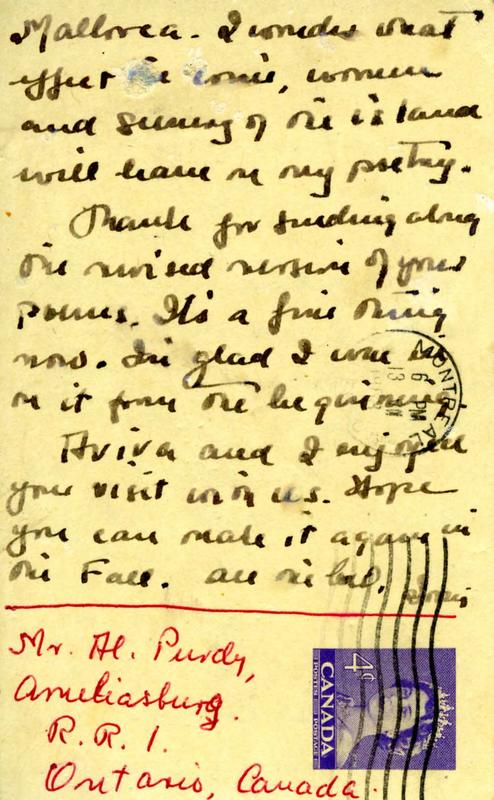 Mallorca. I wonder what
effect the wine, women
and scenery of the island
will have on my poetry.
Thanks for sending along
the revised version of your
poems. It's a fine thing
now. I'm glad I was in
on it from the beginning.
Aviva and I enjoyed
your visit with us. Hope
you can make it again in
the Fall. All the best, Irving
Mr. Al. Purdy,
Ameliasburg.
R. R. 1.
Ontario, Canada.
MONTREAL
6 PM
13
4¢
CANADA
POSTES POSTAGE